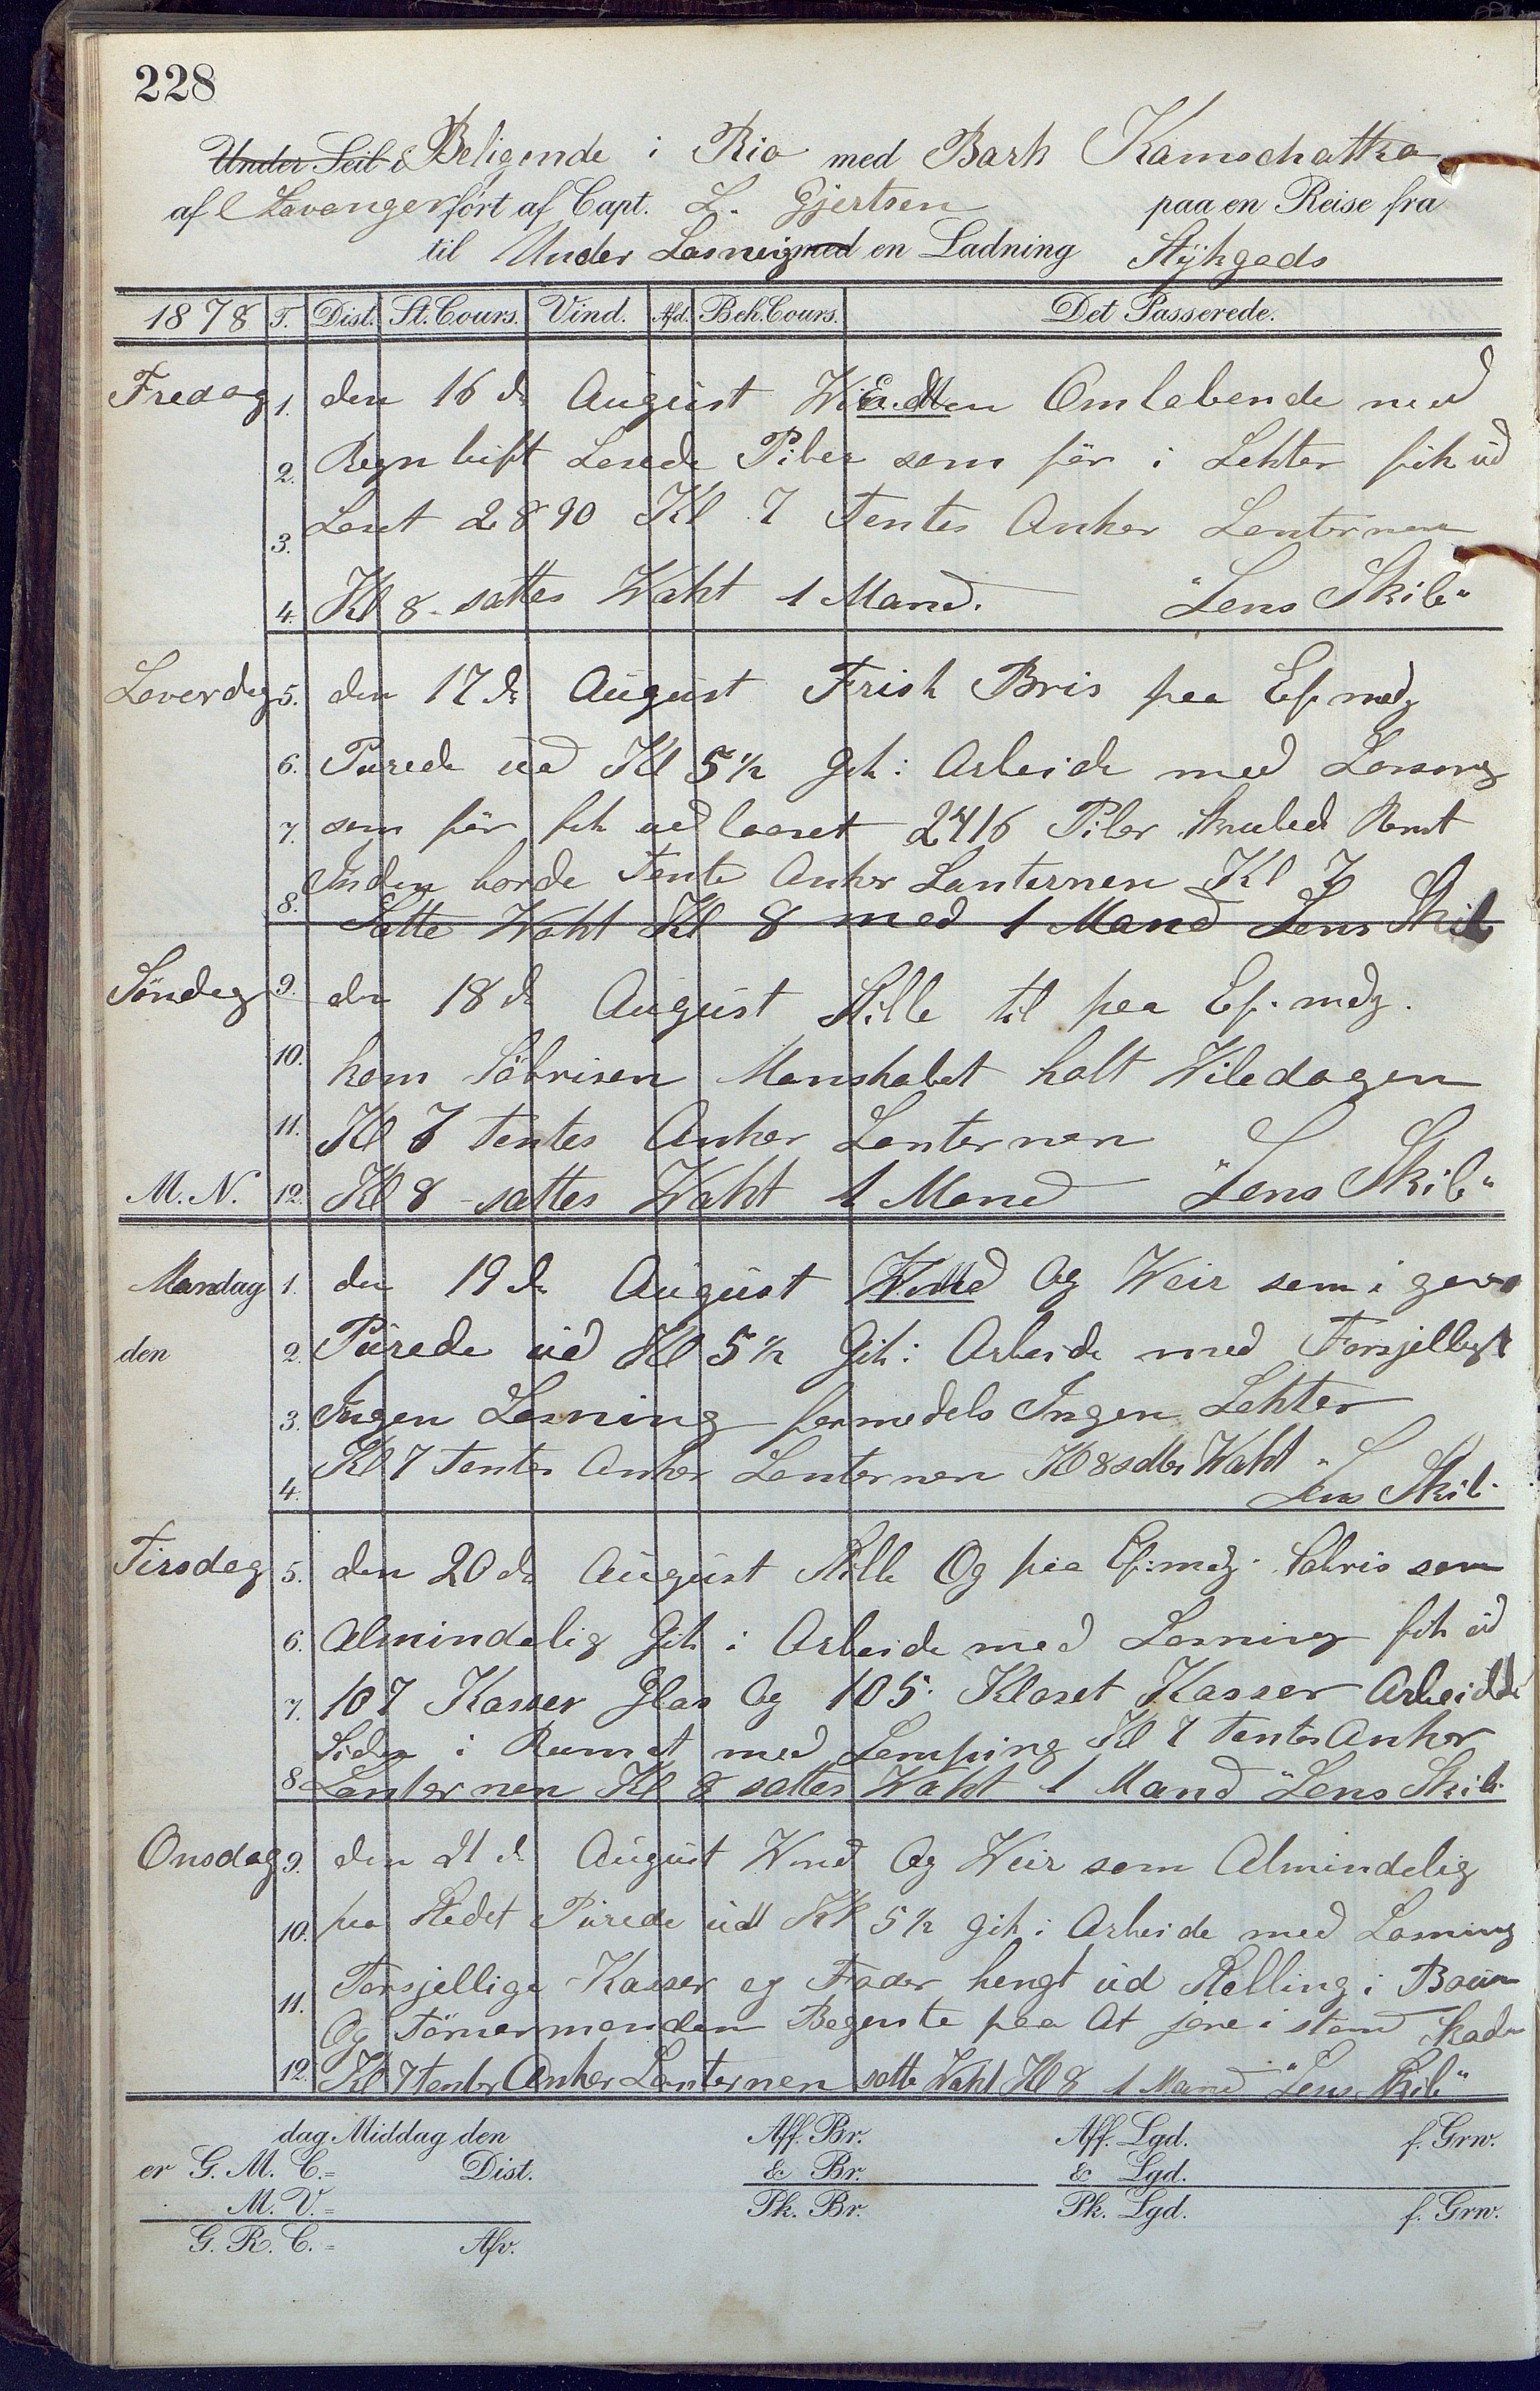 228
Under Seil i Beligende i Rio med Bark Kamschatka
af Levanger ført af Capt. L. Gjertsen paa en Reise fra
til Under Losneig med en Ladning Stÿkgods
1878 T. Dist. St. Cours. Vind. Afd. Beh. Cours. Det Passerede.
Fredag 1. den 16 de August Omlebende med
2. Regn luft Losede Piber som för i Lekter fik üd
3. Loset 2890 Kl 7 Tentes Anker Lenternen
4. Kl 8 sattes Waht 1 Mand. "Lens Skib"
Loverdag 5. den 17 de August Frisk Bris paa Ef. medg
6. Pürede üd Kl 5 ½ Gik i Arbeide med Losning
7. som för fik üd loset 2416 Piber Romt
8. Inden borde Tente Anker Lanternen Kl 7
Satte Waht Kl 8 med 1 Mand Lens Skib
Söndag 9. den 18 de August Stille til paa Ef. medg.
10. kom Söbrisen Manskabet holt Wiledagen
11. Kl 7 tentes Anker Lenternen
M. N. 12. Kl 8 sattes Waht 1 Mand "Lens Skib"
Mandag 1. den 19 de August Wind Og Weir som i gaar
den 2. Pürede üd Kl 5 ½ Gik i Arbeide med Forsjelligt
3. Ingen Losning formedels Ingen Lekter
4. Kl 7 Tentes Anker Lenternen Kl 8 sattes Waht "Lens Skib"
Tirsdag 5. den 20 de August Stille Og paa Ef. medg. Söbris som
6. Almindelig Gik i Arbeide med Losning fik üd
7. 107 Kasser Glas Og 105 Kloset Kasser Arbeidde
Siden i Rumet med Lemping Kl 7 tentes Anker
8. Lanternen Kl 8 sattes Waht 1 Mand "Lens Skib"
Onsdag 9. den 21 de August Wind Og Weir som Almindelig
10. paa Stedet Pürede üd Kl 5 ½ gik i Arbeide med Losning
11. Forsjellige Kasser og Fader hengt üd Stelling i Bouen
Og Tömermanden Begente paa At jöre i stand Skaden
12. Kl 7 tentes Anker Lanternen satte Waht Kl 8 1 Mand "Lens Skib"
dag Middag den Aff. Br. Aff. Lgd. f. Grw.
er G. M. C.= Dist. & Br. & Lgd.
M. V.= Pk. Br. Pk. Lgd. f. Grw.
G. R. C.= Afv.